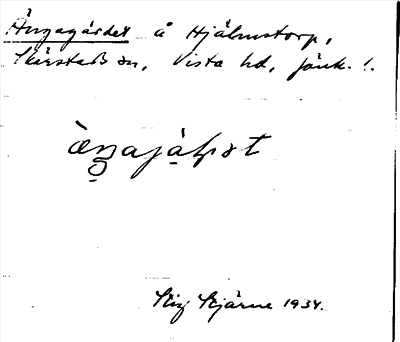 Ängagärdet å Hjälmstorp,
Skärstads sn, Vista hd, Jönk. l.
Stig Stjärne 1934.